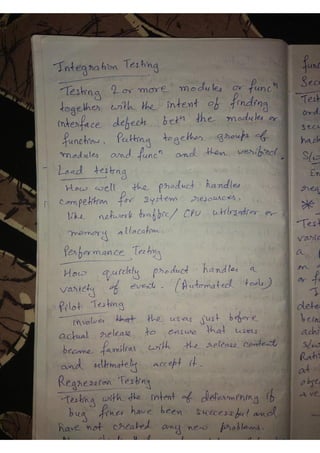 Integration Testing
Testing 2 or more modules or funcⁿ
together with the intent of finding
interface defects betⁿ the modules or
function. Putting together groups of
modules and funcⁿ and then verified.
Load testing
How well the product handles
competition for system resources.
like network traffic/ CPU utilization or
memory allocation
Performance Testing
How quickly product handles a
variety of event. (Automated tools)
Pilot Testing
involves that the users just before
actual release to ensure that users
become familiar with the release content
and ultimately accept it.
Regression Testing
Testing with the intent of determining if
bug fixes have been successful and
have not created any new problems.